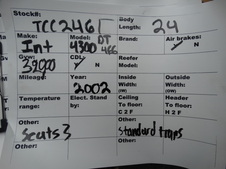 Stock#:
TCC246
Body
Length: 24
Make: Int
Model: 4300 DT 466
Brand:
Air brakes:
Y N
Gvw:
CDL:
Y N
Reefer
Model:
Mileage:
Year: 2002
Inside
Width:
(IW)
Outside
Width:
(OW)
Temperature
range:
Elect. Stand
by:
Ceiling
To floor:
C 2 F
Header
To floor:
H 2 F
Other:
Seats 3
Other:
standard traps